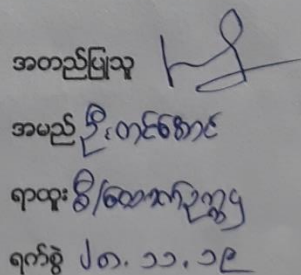 အတည်ပြုသူ
အမည် ဦးတင်အောင်
ရာထူး စီ/ထောက်ဥက္ကဌ
ရက်စွဲ ၂၈.၁၁.၁၉